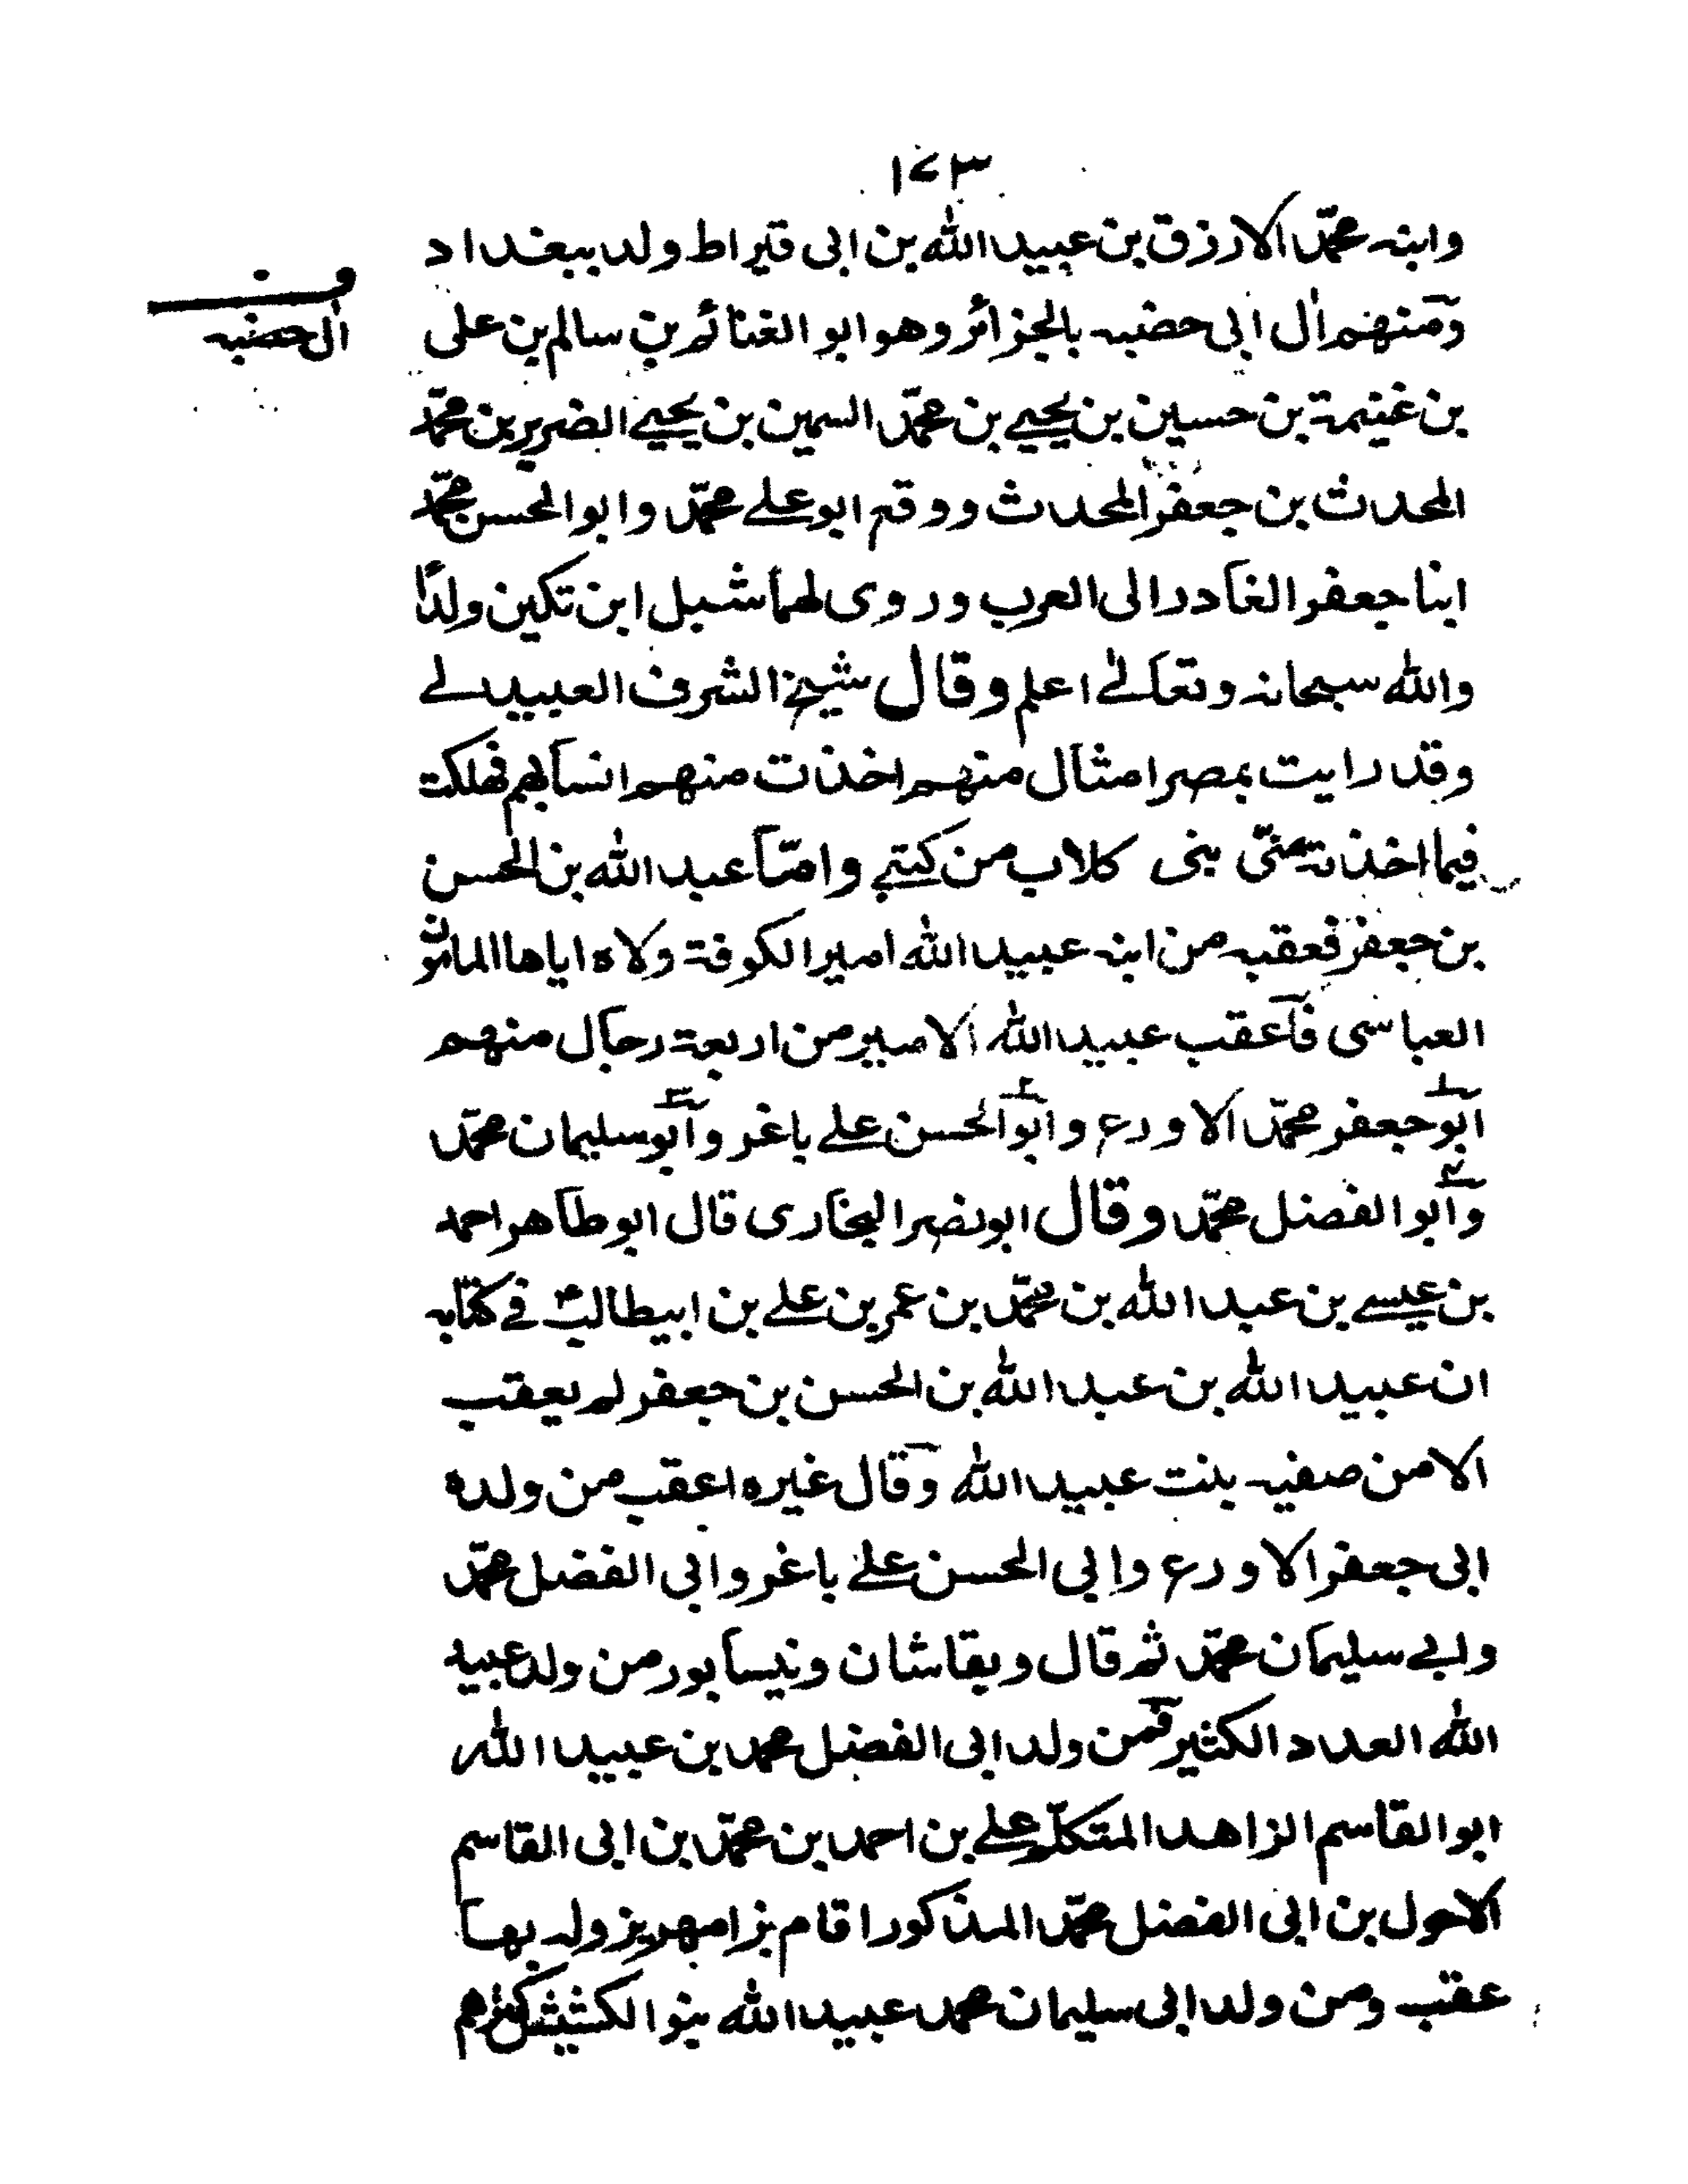 ١٧٣
وابنه محمّد الازرق بن عبيد الله بن ابى قيراط ولد ببغداد
ومنهم اٰل ابى حضنيه بالجزائر وهو ابو الغنائم بن سالم بن على
ف
اٰل حضنيه
بن غنيمة بن حسين بن يحيى بن محمّد السمين بن يحيى الضرير بن محمّد
المحدث بن جعفر المحدث ووقع ابو على محمّد وابو الحسن محمّد
ابنا جعفر الغادر الى العرب وروى لهما شبل ابن تكين ولدًا
والله سبحانه وتعالىٰ اعلم وقال شيخ الشرف العبيدلى
وقد رايت بمصر امثال منهم اخذت منهم انسابهم فهلكت
فيما اخذته منّى بنى كلاب من كتبى وامّا عبد الله بن الحسن
بن جعفر فعقبه من ابنه عبيد الله امير الكوفة ولاه اياها المامون
العباسى فاعقب عبيد الله الامير من اربعة رجال منهم
ابو جعفر محمّد الاورع وابو الحسن على باغر وابو سليمان محمّد
وابو الفضل محمّد وقال ابو نصر البخارى قال ابو طاهر احمد
بن عيسى بن عبد الله بن محمّد بن عمر بن على بن ابيطالبؑ فى كتابه
ان عبيد الله بن عبد الله بن الحسن بن جعفر لم يعقب
الا من صفيه بنت عبيد الله وقال غيره اعقب من ولده
ابى جعفر الاورع وابى الحسن على باغر وابى الفضل محمّد
وابى سليمان محمّد ثم قال وبقاشان ونيسابور من ولد عبيد
الله العداد الكثير فمن ولد ابى الفضل محمد بن عبيد الله
ابو القاسم الزاهد المتكلم على بن احمد بن محمّد بن ابى القاسم
الاحول بن ابى الفضل محمّد المذكور اقام برامهريز وله بها
عقب ومن ولد ابى سليمان محمد عبيد الله بنو الكشيش